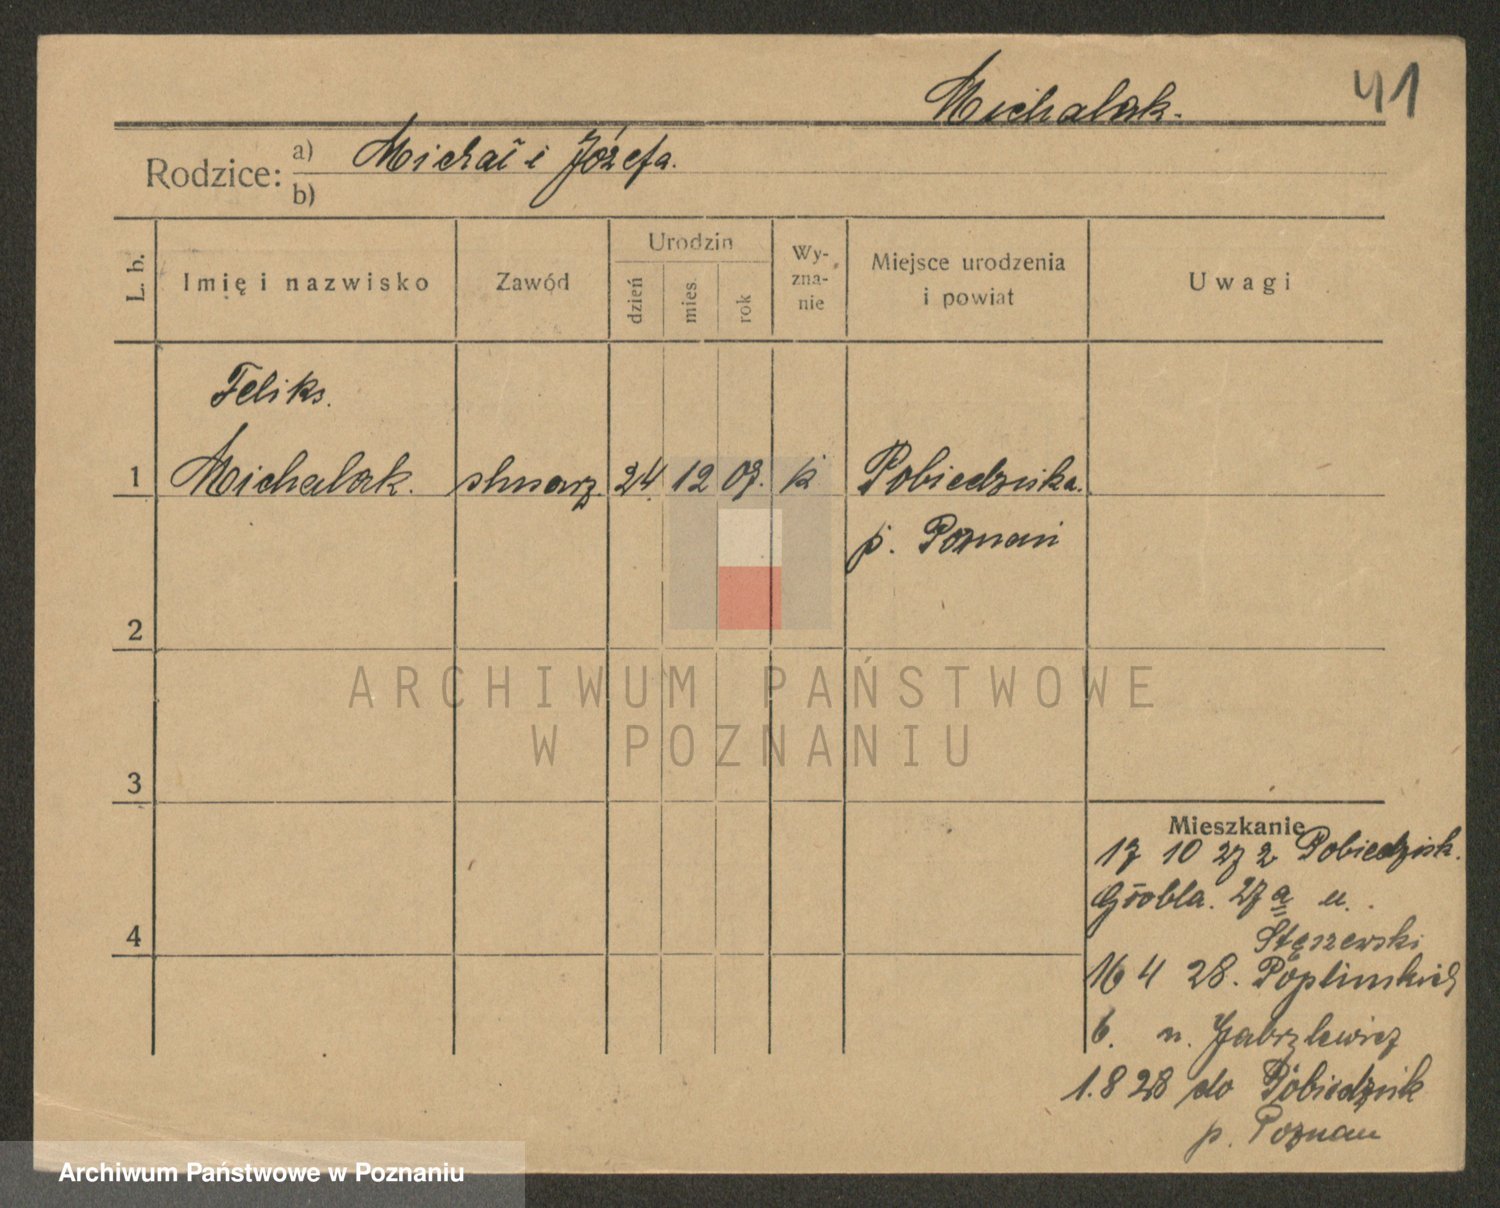 Michalak.
41
Rodzice: a) Michał i Józefa.
b)
L. b.
Imię i nazwisko
Zawód
Urodzin
dzień
mies.
rok
Wy-
zna-
nie
Miejsce urodzenia
i powiat
Uwagi
Feliks.
1 Michalak. 24. 12 07. k Pobiedziska.
p. Poznań
2
3
4
Mieszkanie
17 10 27 z Pobiedzisk.
Grobla. 27 a u.
Stęszewski
16 4 28. Poplińskich
6. u.
1.8 28 do Pobiedzisk
p. Poznań
ARCHIWUM PAŃSTWOWE
W POZNANIU
Archiwum Państwowe w Poznaniu